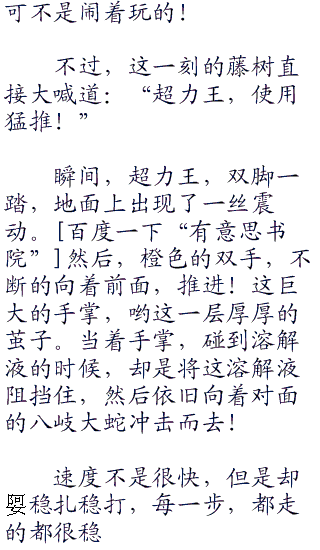 可不是闹着玩的！
不过，这一刻的藤树直
接大喊道：“超力王，使用
猛推！”
瞬间，超力王，双脚一
踏，地面上出现了一丝震
动。[百度一下“有意思书
院”]然后，橙色的双手，不
断的向着前面，推进！这巨
大的手掌，哟这一层厚厚的
茧子。当着手掌，碰到溶解
液的时候，却是将这溶解液
阻挡住，然后依旧向着对面
的八岐大蛇冲击而去！
速度不是很快，但是却
稳扎稳打，每一步，都走
的都很稳